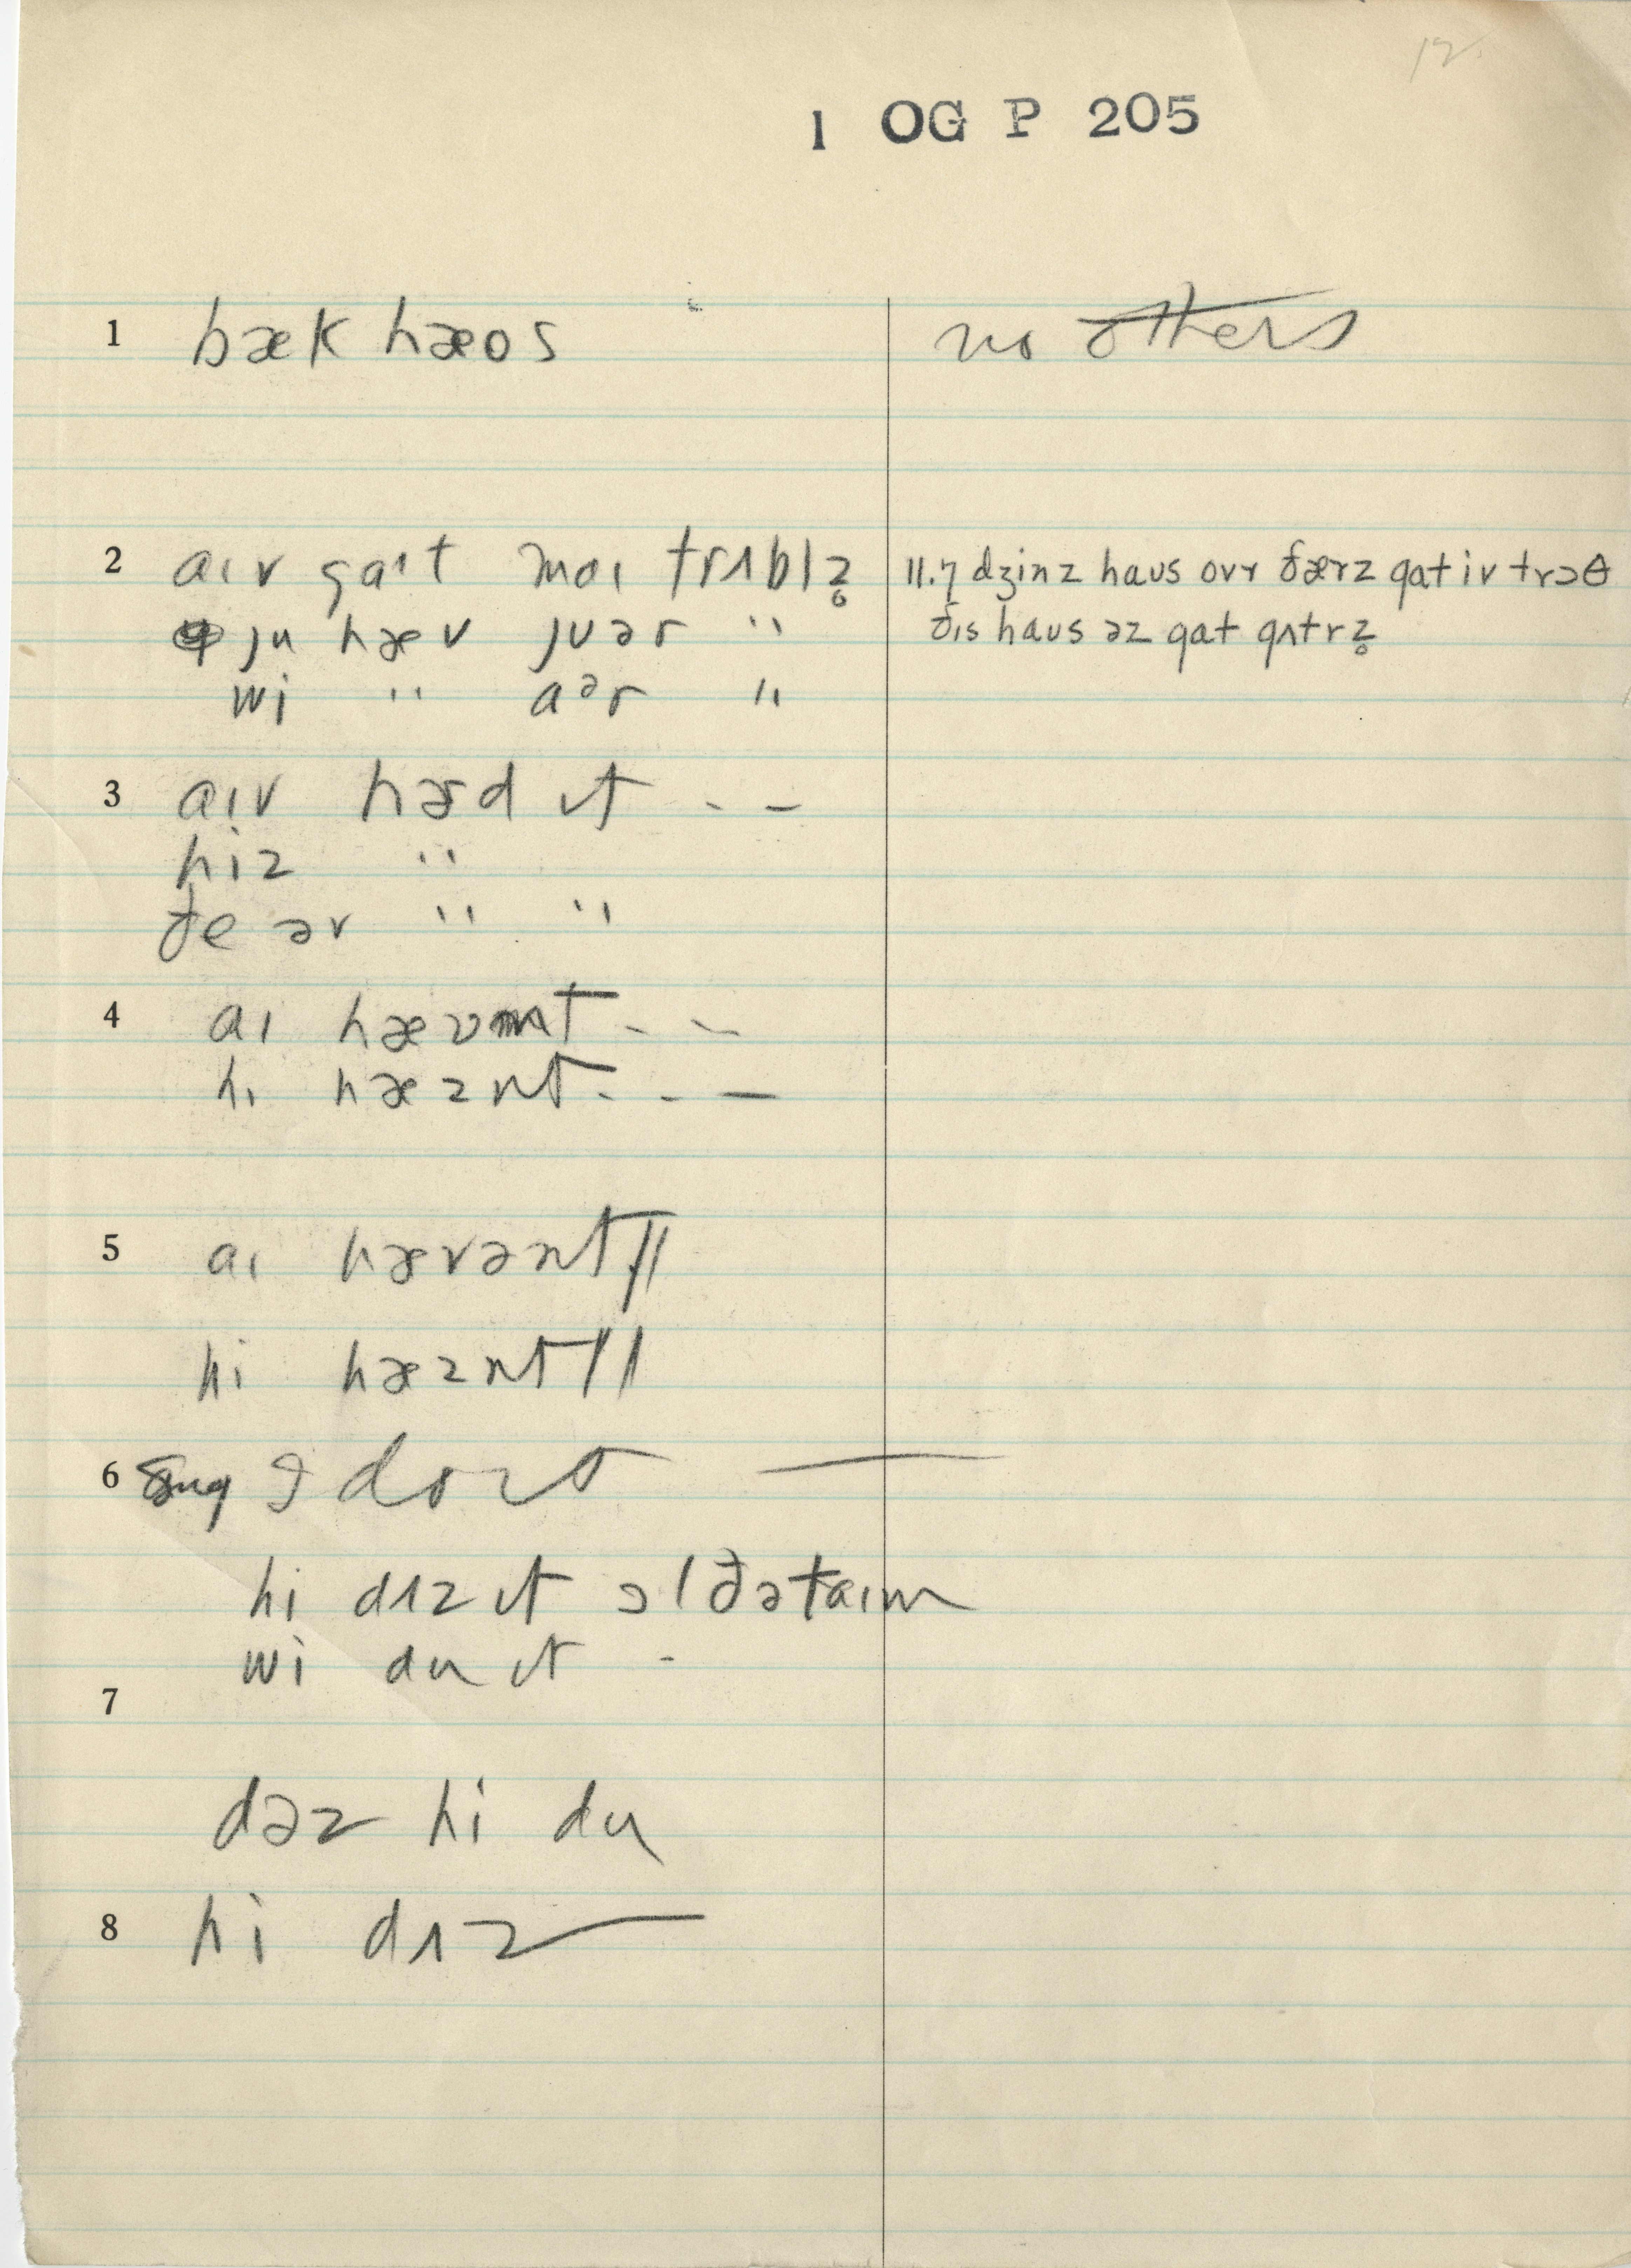 12.
1 OG P 205
1 bæk hæos no others
2 aɪv gaɪt maɪ trʌblz̥ 11.7 dʒinz haus ovr ðærz gat iv trɔθ
ju hæv juər " ðɪs haus əz gat gʌtrz̥
wi " aər "
3 aɪv hɚd ɪt - -
hiz "
ðe əv " "
4 aɪ hævnt - -
hɪ hæznt - - -
5 aɪ hævənt ||
hi hæznt ||
6 sug I do it —
hi dʌz ɪt ɔl ðə taɪm
wi du ɪt -
7
dəz hi du
8 hi dʌz